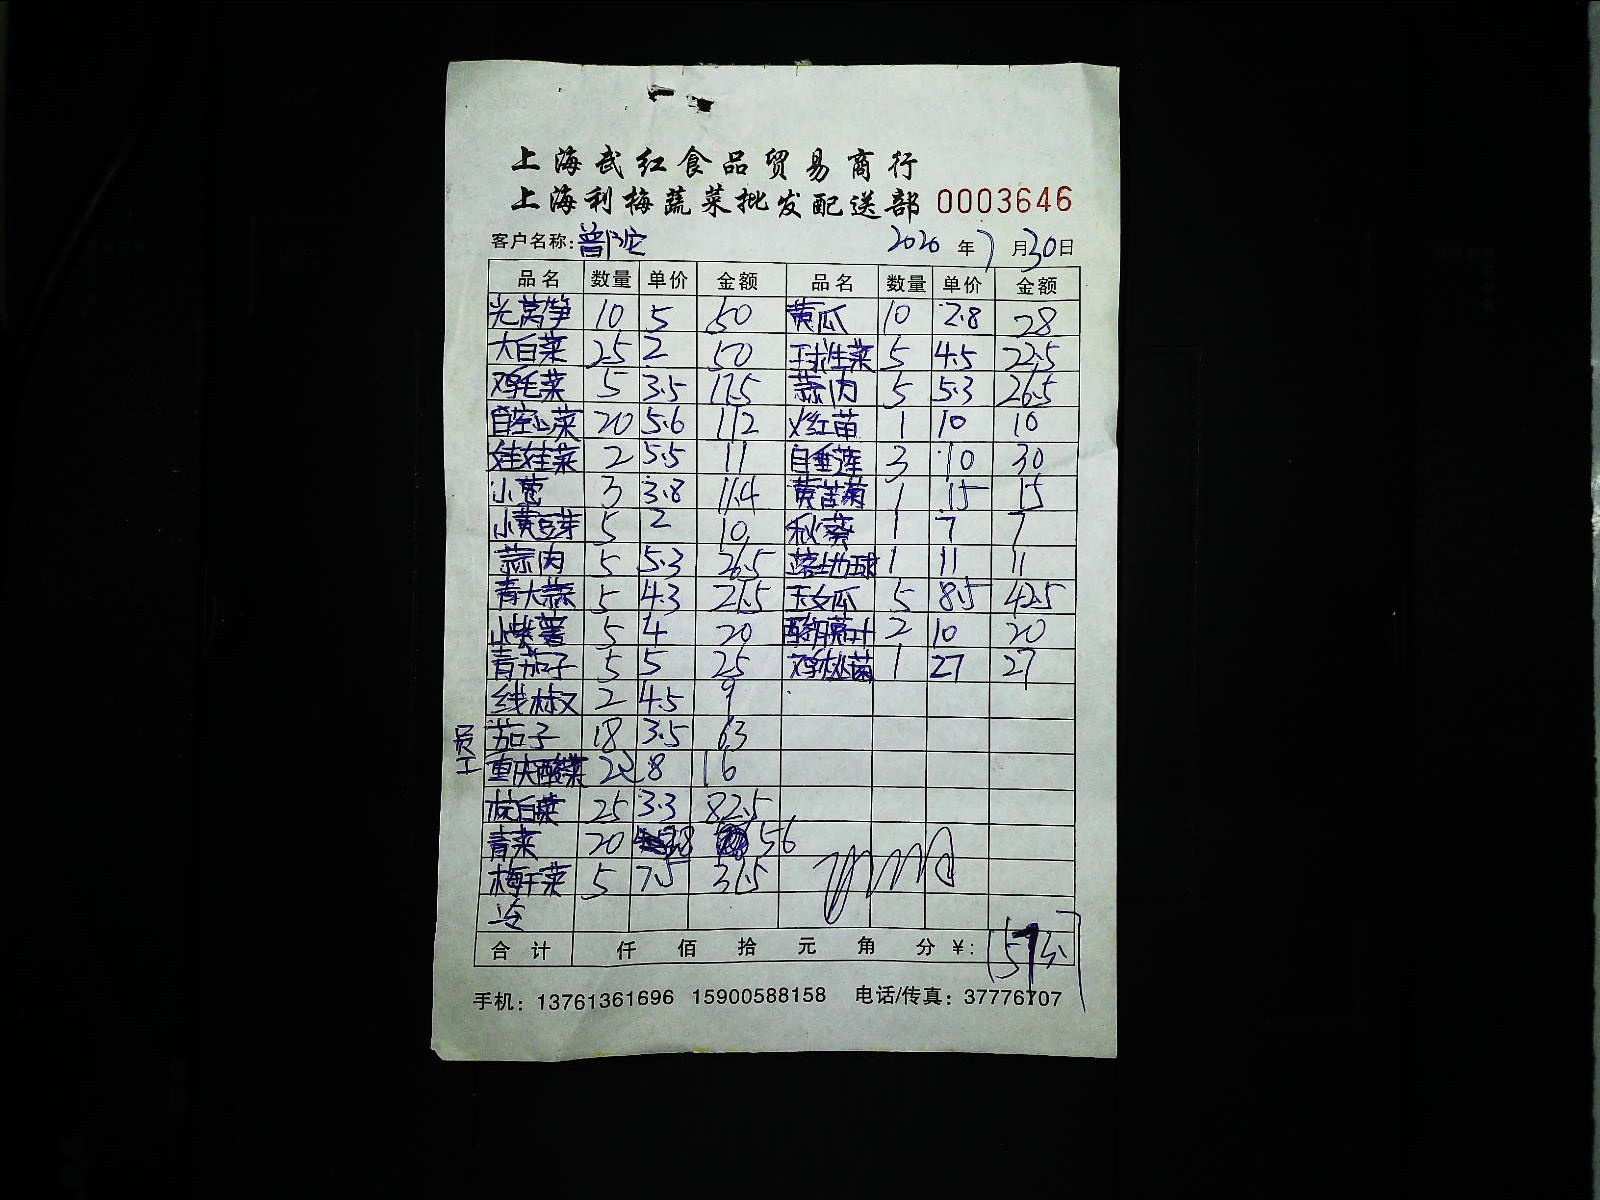 上海武红食品贸易商行
上海利梅蔬菜批发配送部 0003646
客户名称:普陀 2020年7月30日
品名 数量 单价 金额 品名 数量 单价 金额
光莴笋 10 5 50 黄瓜 10 2.8 28
大白菜 25 2 50 球生菜 5 4.5 22.5
鸡毛菜 5 3.5 17.5 蒜肉 5 5.3 26.5
白空心菜 20 5.6 112 红苗 1 10 10
娃娃菜 2 5.5 11 3 10 30
小葱 3 3.8 11.4 黄苦菊 1 15 15
小黄豆芽 5 2 10 秋葵 1 7 7
蒜肉 5 5.3 26.5 1 11 11
青大蒜 5 4.3 21.5 玉女瓜 5 8.5 42.5
小紫薯 5 4 20 2 10 20
青茄子 5 5 25 1 27 27
线椒 2 4.5 9
员工 茄子 18 3.5 63
重庆酸菜 2 8 16
白菜 25 3.3 82.5
青菜 20 2.8 56
梅干菜 5 7.5 37.5
合计 仟 佰 拾 元 角 分 ¥:
手机: 13761361696 15900588158 电话/传真: 37776707